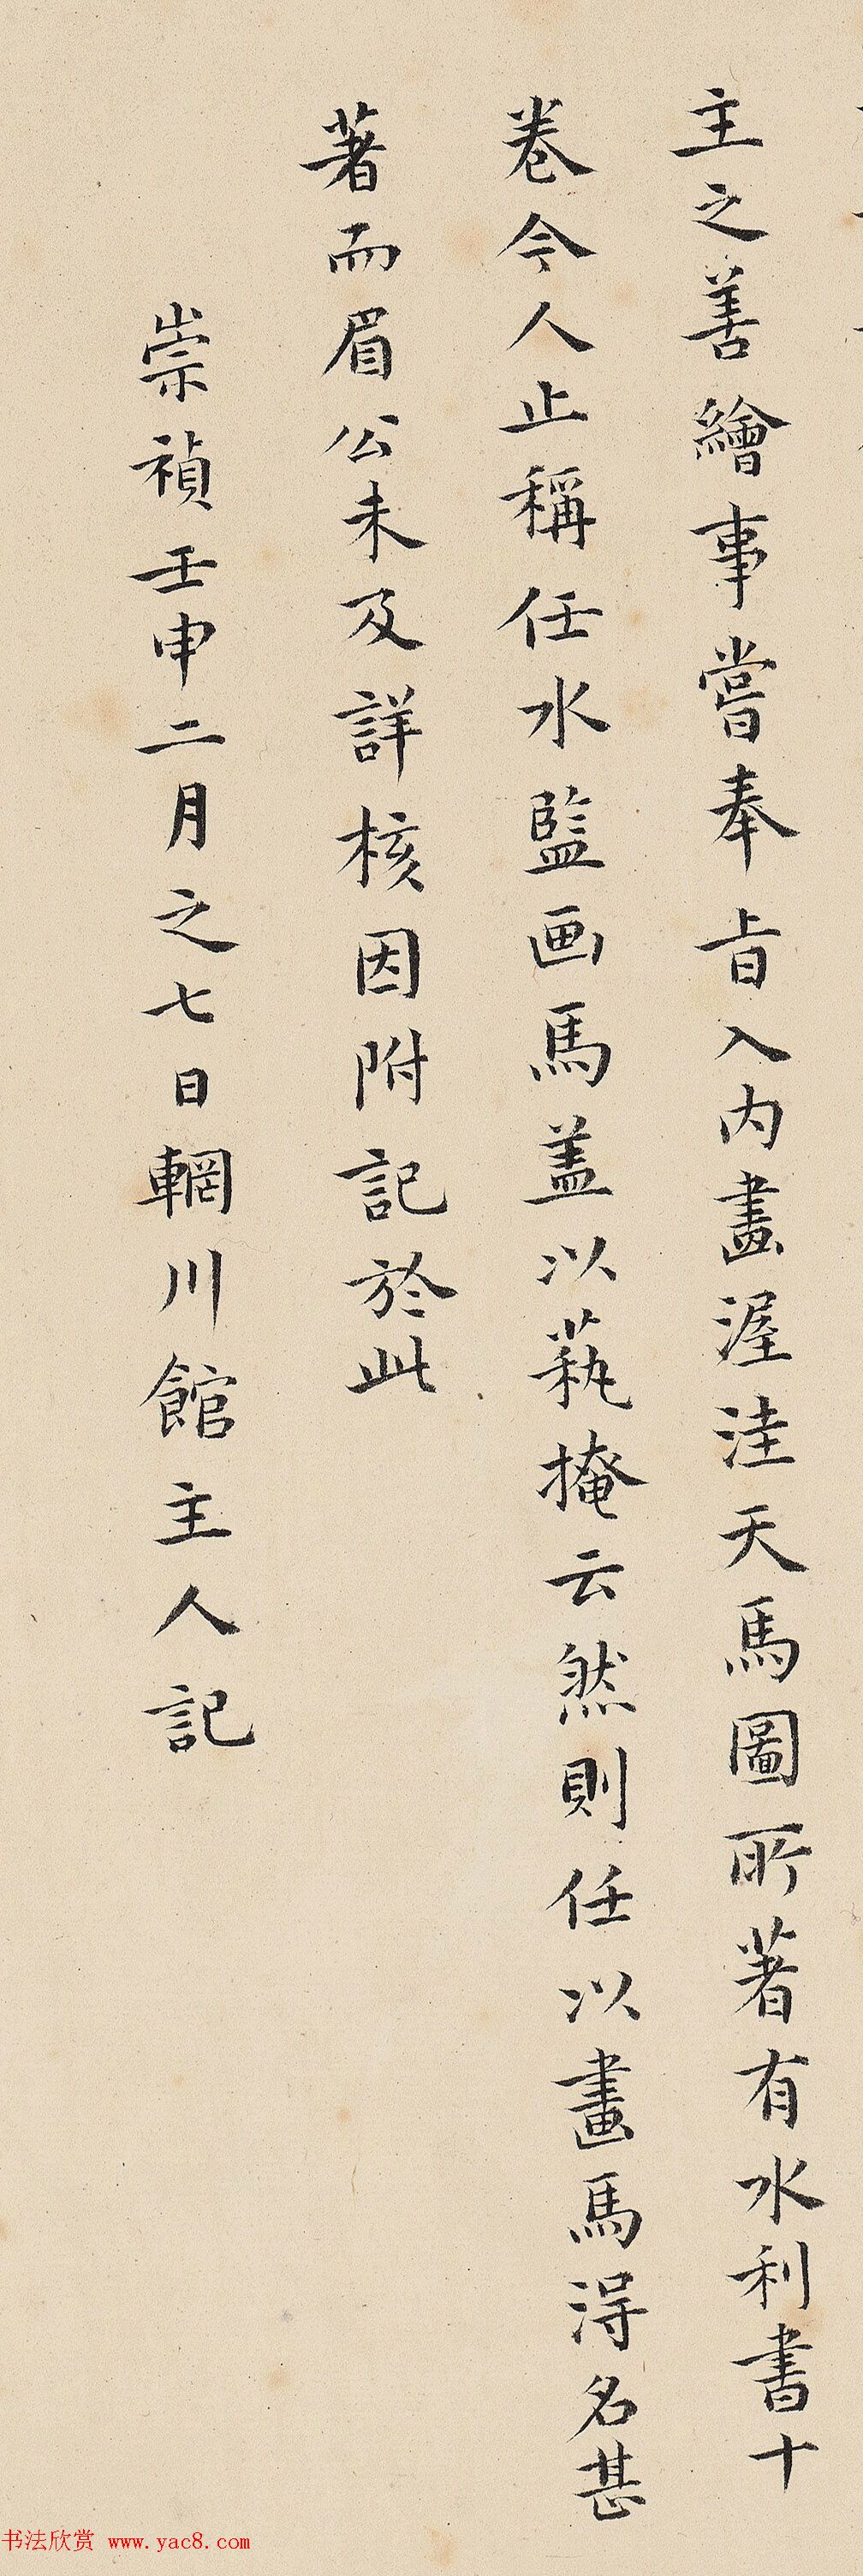 主之善繪事嘗奉旨入內畫渥洼天馬圖所著有水利書十
卷今人止稱任水監画馬盖以藝掩云然則任以畫馬得名甚
著而眉公未及詳核因附記於此
崇禎壬申二月之七日輞川館主人記
书法欣赏 www.yac8.com